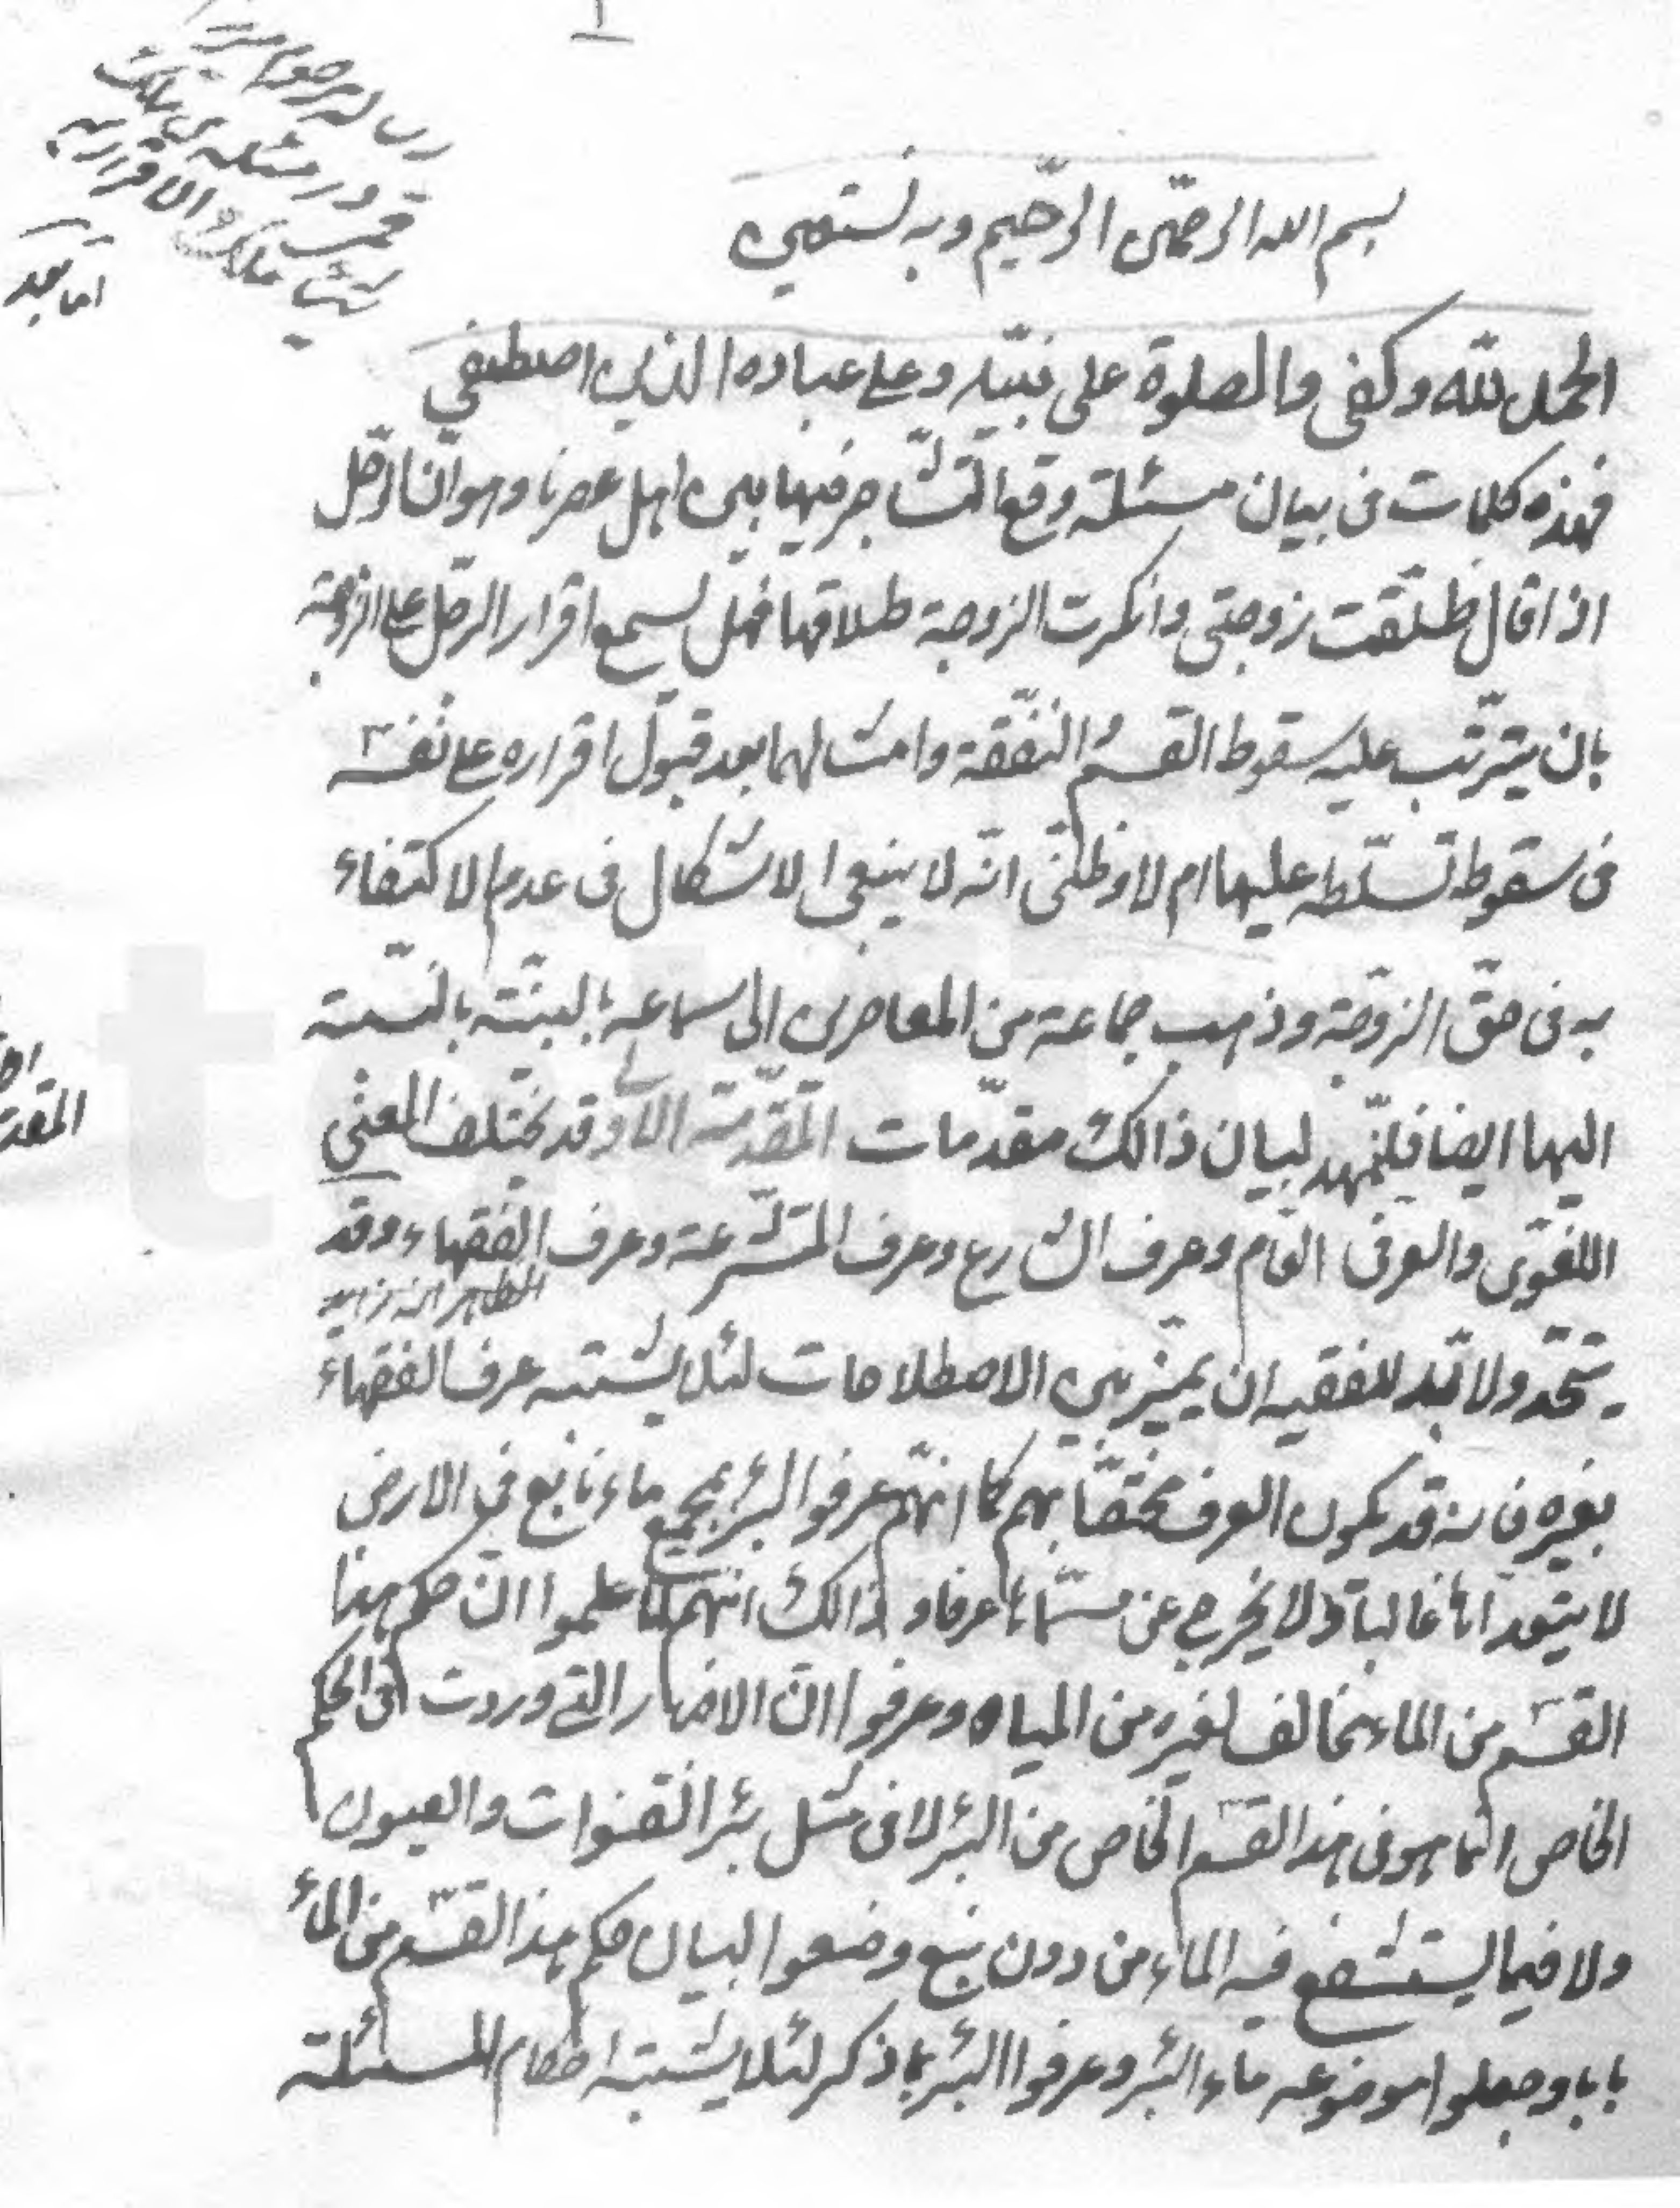 ١
رساله مرحوم ميرزا
قمى در مسئله من ملك
شيئا ملك الاقرار به
اما بعد
بسم الله الرحمن الرحيم وبه نستعين
الحمد لله وكفى والصلوة على نبيّه وعلى عباده الذين اصطفى
فهذه كلمات فى بيان مسئلة وقع التشاجر فيها بين اهل عصرنا وهو انّ الرجل
اذا قال طلّقت زوجتى وانكرت الزوجة طلاقها فهل يسمع اقرار الرجل على الزوجة
بان يترتّب عليه سقوط القسم والنفقة وامثالهما بعد قبول اقراره على نفسه
فى سقوط تسلّطه عليها ام لا وظنّى انّه لا ينبغى الاشكال فى عدم الاكتفاء
به فى حقّ الزوجة وذهب جماعة من المعاصرين الى سماعه بالبيّنة بالنسبة
اليها ايضا فلنمهد لبيان ذالك مقدّمات المقدّمة الاولى قد يختلف المعنى
اللغوى والعرفى العام وعرف الشارع وعرف المتشرعة وعرف الفقهاء وقد
الظاهر انه زايد
يتحد ولا بدّ للفقيه ان يميّز بين الاصطلاحات لئلا يشتبه عرف الفقهاء
بغيره فانه قد يكون العرف مختصّا بهم كما انهم عرفوا البئر بمجمع ماء نابع فى الارض
لا يتعداها غالبا ولا يخرج عن مسمّاها عرفا وذالك انهم لما علموا ان حكم هذا
القسم من الماء مخالف لغيره من المياه وعرفوا ان الاخبار التى وردت فى الحكم
الخاص انما هو فى هذا القسم الخاص من البئر لا فى مثل بئر القنوات والعيون
ولا فيما يستنقع فيه الماء من دون نبع وضعوا لبيان حكم هذا القسم من الماء
بابا وجعلوا موضوعه ماء البئر وعرفوا البئر بما ذكر لئلا يشتبه احكام المسئلة
المقد